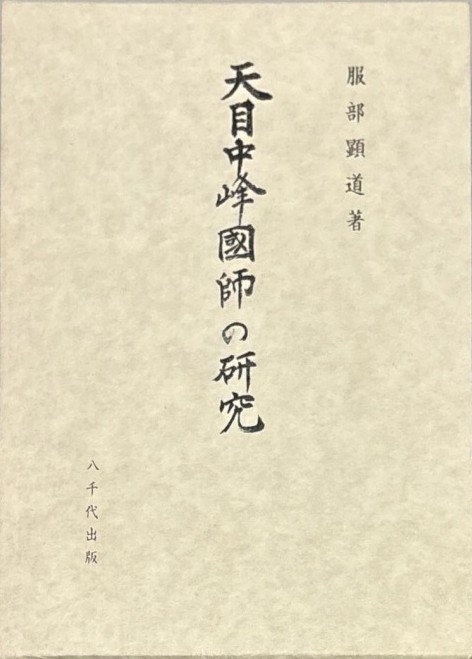 服部顕道著
天目中峰國師の研究
八千代出版